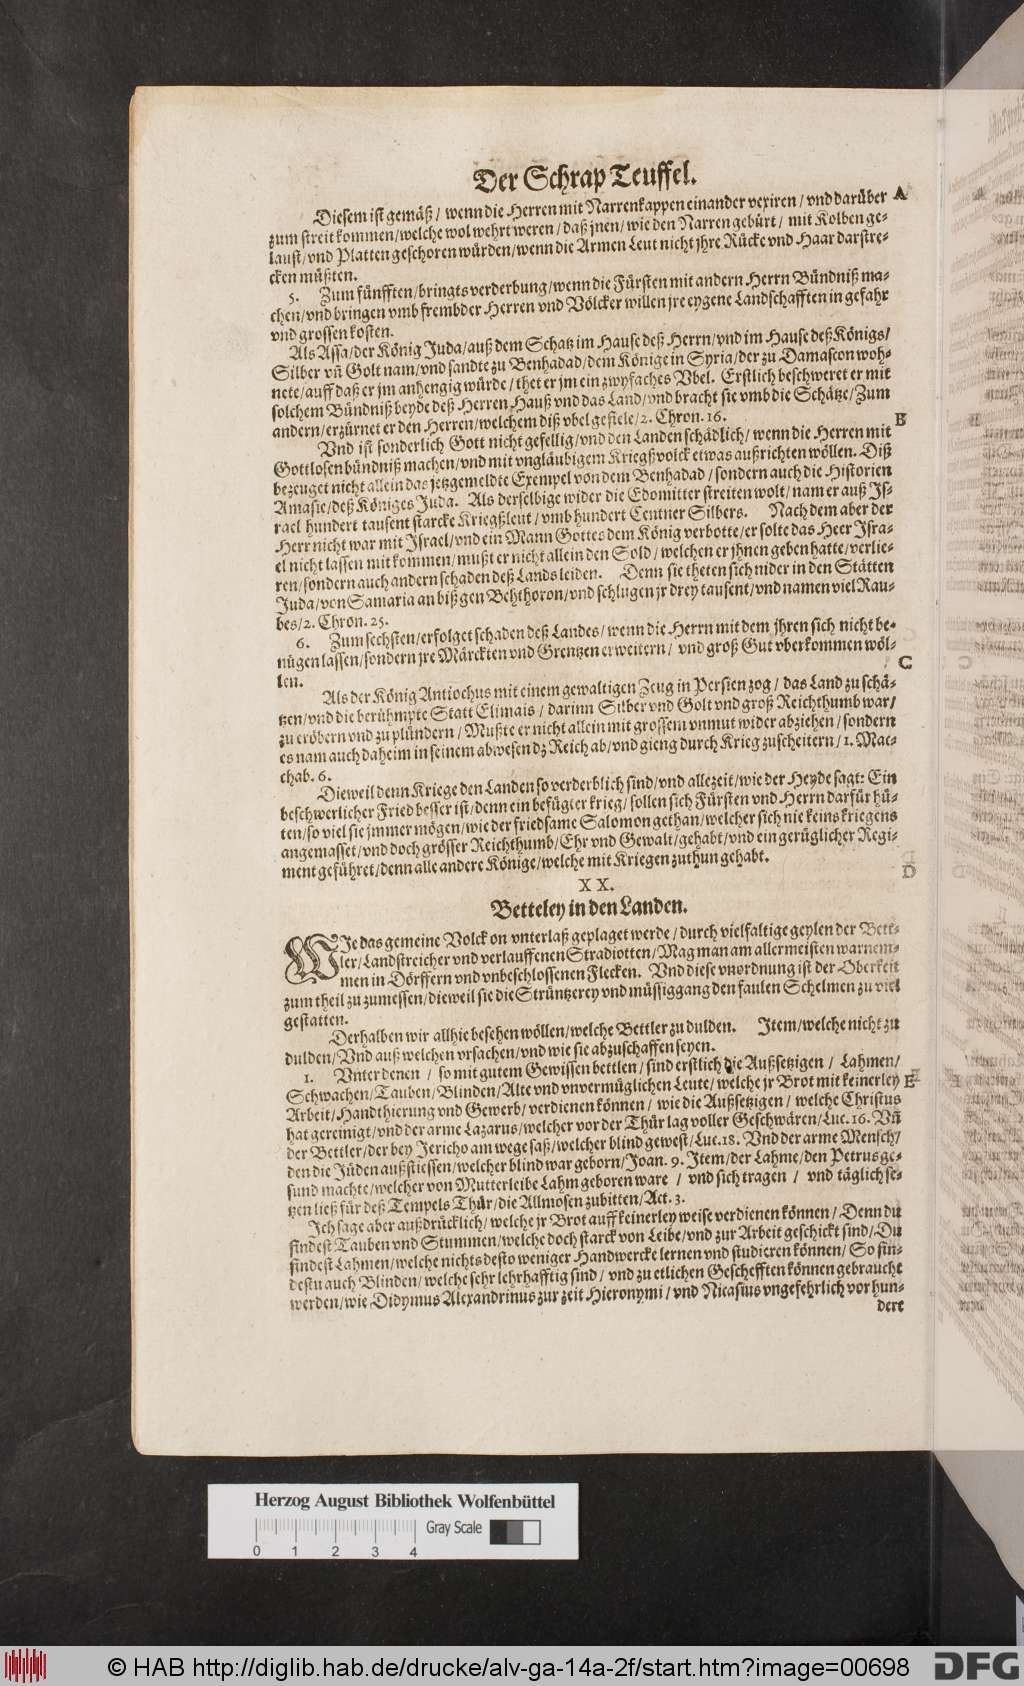 Der Schrap Teuffel.
Diesem ist gemäß / wenn die Herren mit Narrenkappen einander vexiren / vnd darüber A
zum streit kommen/welche wol wehrt weren / daß jnen/ wie den Narren gebürt / mit Kolben ge-
laust/ vnd Platten geschoren würden/wenn die Armen Leut nicht jhre Rücke vnd Haar darstre-
cken müßten.
5. Zum fünfften/bringts verderbung/wenn die Fürsten mit andern Herrn Bündniß ma-
chen/vnd bringen vmb frembder Herren vnd Völcker willen jre eygene Landschafften in gefahr
vnd grossen kosten.
Als Assa/der König Juda/auß dem Schatz im Hause deß Herrn/vnd im Hause deß Königs/
Silber vñ Golt nam/vnd sandte zu Benhadad/dem Könige in Syria/der zu Damascon woh-
nete/auff daß er jm anhengig würde / thet er jm ein zwyfaches Vbel. Erstlich beschweret er mit
solchem Bündniß beyde deß Herren Hauß vnd das Land/vnd bracht sie vmb die Schätze/Zum
andern/erzürnet er den Herren/welchem diß vbel gefiele/2. Chron. 16. B
Vnd ist sonderlich Gott nicht gefellig/vnd den Landen schädlich/ wenn die Herren mit
Gottlosen bündniß machen/vnd mit vngläubigem Kriegßvolck etwas außrichten wöllen. Diß
bezeuget nicht allein das jetzgemeldte Exempel von dem Benhadad / sondern auch die Historien
Amasie/deß Königes Juda. Als derselbige wider die Edomitter streiten wolt/ nam er auß Is-
rael hundert tausent starcke Kriegßleut / vmb hundert Centner Silbers. Nach dem aber der
Herr nicht war mit Israel/vnd ein Mann Gottes dem König verbotte/er solte das Heer Isra-
el nicht lassen mit kommen/ mußt er nicht allein den Sold / welchen er jhnen geben hatte/verlie-
ren/sondern auch andern schaden deß Lands leiden. Denn sie theten sich nider in den Stätten
Juda/von Samaria an biß gen Behthoron/vnd schlugen jr drey tausent/vnd namen viel Rau-
bes/2. Chron. 25.
6. Zum sechsten/erfolget schaden deß Landes/ wenn die Herrn mit dem jhren sich nicht be-
nügen lassen/sondern jre Märckten vnd Grentzen erweitern / vnd groß Gut vberkommen wöl-
len. C
Als der König Antiochus mit einem gewaltigen Zeug in Persien zog / das Land zu schä-
tzen/vnd die berühmpte Statt Elimais / darinn Silber vnd Golt vnd groß Reichthumb war/
zu eröbern vnd zu plündern / Mußte er nicht allein mit grossem vnmut wider abziehen / sondern
es nam auch daheim in seinem abwesen dz Reich ab/vnd gieng durch Krieg zuscheitern / 1. Mac-
chab. 6.
Dieweil denn Kriege den Landen so verderblich sind/vnd allezeit/wie der Heyde sagt: Ein
beschwerlicher Fried besser ist/denn ein befügter krieg/ sollen sich Fürsten vnd Herrn darfür hü-
ten/so viel sie jmmer mögen/wie der friedsame Salomon gethan/welcher sich nie keins kriegens
angemasset/vnd doch grösser Reichthumb/Ehr vnd Gewalt/gehabt/vnd ein gerüglicher Regi-
ment geführet/denn alle andere Könige/welche mit Kriegen zuthun gehabt.
D
XX.
Betteley in den Landen.
WIe das gemeine Volck on vnterlaß geplaget werde / durch vielfaltige geylen der Bett-
ler/Landstreicher vnd verlauffenen Stradiotten/Mag man am allermeisten warnem-
men in Dörffern vnd vnbeschlossenen Flecken. Vnd diese vnordnung ist der Oberkeit
zum theil zu zumessen/dieweil sie die Strüntzerey vnd müssiggang den faulen Schelmen zu viel
gestatten.
Derhalben wir allhie besehen wöllen/welche Bettler zu dulden. Item/welche nicht zu
dulden/Vnd auß welchen vrsachen/vnd wie sie abzuschaffen seyen.
1. Vnter denen / so mit gutem Gewissen bettlen / sind erstlich die Außsetzigen / Lahmen/
Schwachen/Tauben/Blinden/Alte vnd vnvermüglichen Leute/ welche jr Brot mit keinerley E
Arbeit/Handthierung vnd Gewerb/ verdienen können / wie die Außsetzigen / welche Christus
hat gereinigt/vnd der arme Lazarus/welcher vor der Thür lag voller Geschwären/Luc. 16. Vñ
der Bettler/der bey Jericho am wege saß/welcher blind gewest/Luc. 18. Vnd der arme Mensch/
den die Jüden außstiessen/welcher blind war geborn/Joan. 9. Item/der Lahme/den Petrus ge-
sund machte/welcher von Mutterleibe Lahm geboren ware / vnd sich tragen / vnd täglich se-
tzen ließ für deß Tempels Thür/die Allmosen zubitten/Act. 3.
Ich sage aber außdrücklich/ welche jr Brot auff keinerley weise verdienen können / Denn du
findest Tauben vnd Stummen/welche doch starck von Leibe/vnd zur Arbeit geschickt sind/Du
findest Lahmen/welche nichts desto weniger Handwercke lernen vnd studieren können/ So fin-
destu auch Blinden/welche sehr lehrhafftig sind/ vnd zu etlichen Geschefften können gebraucht
werden/wie Didymus Alexandrinus zur zeit Hieronymi / vnd Nicasius vngefehrlich vor hun-
dert
Herzog August Bibliothek Wolfenbüttel
Gray Scale
0 1 2 3 4
© HAB http://diglib.hab.de/drucke/alv-ga-14a-2f/start.htm?image=00698 DFG